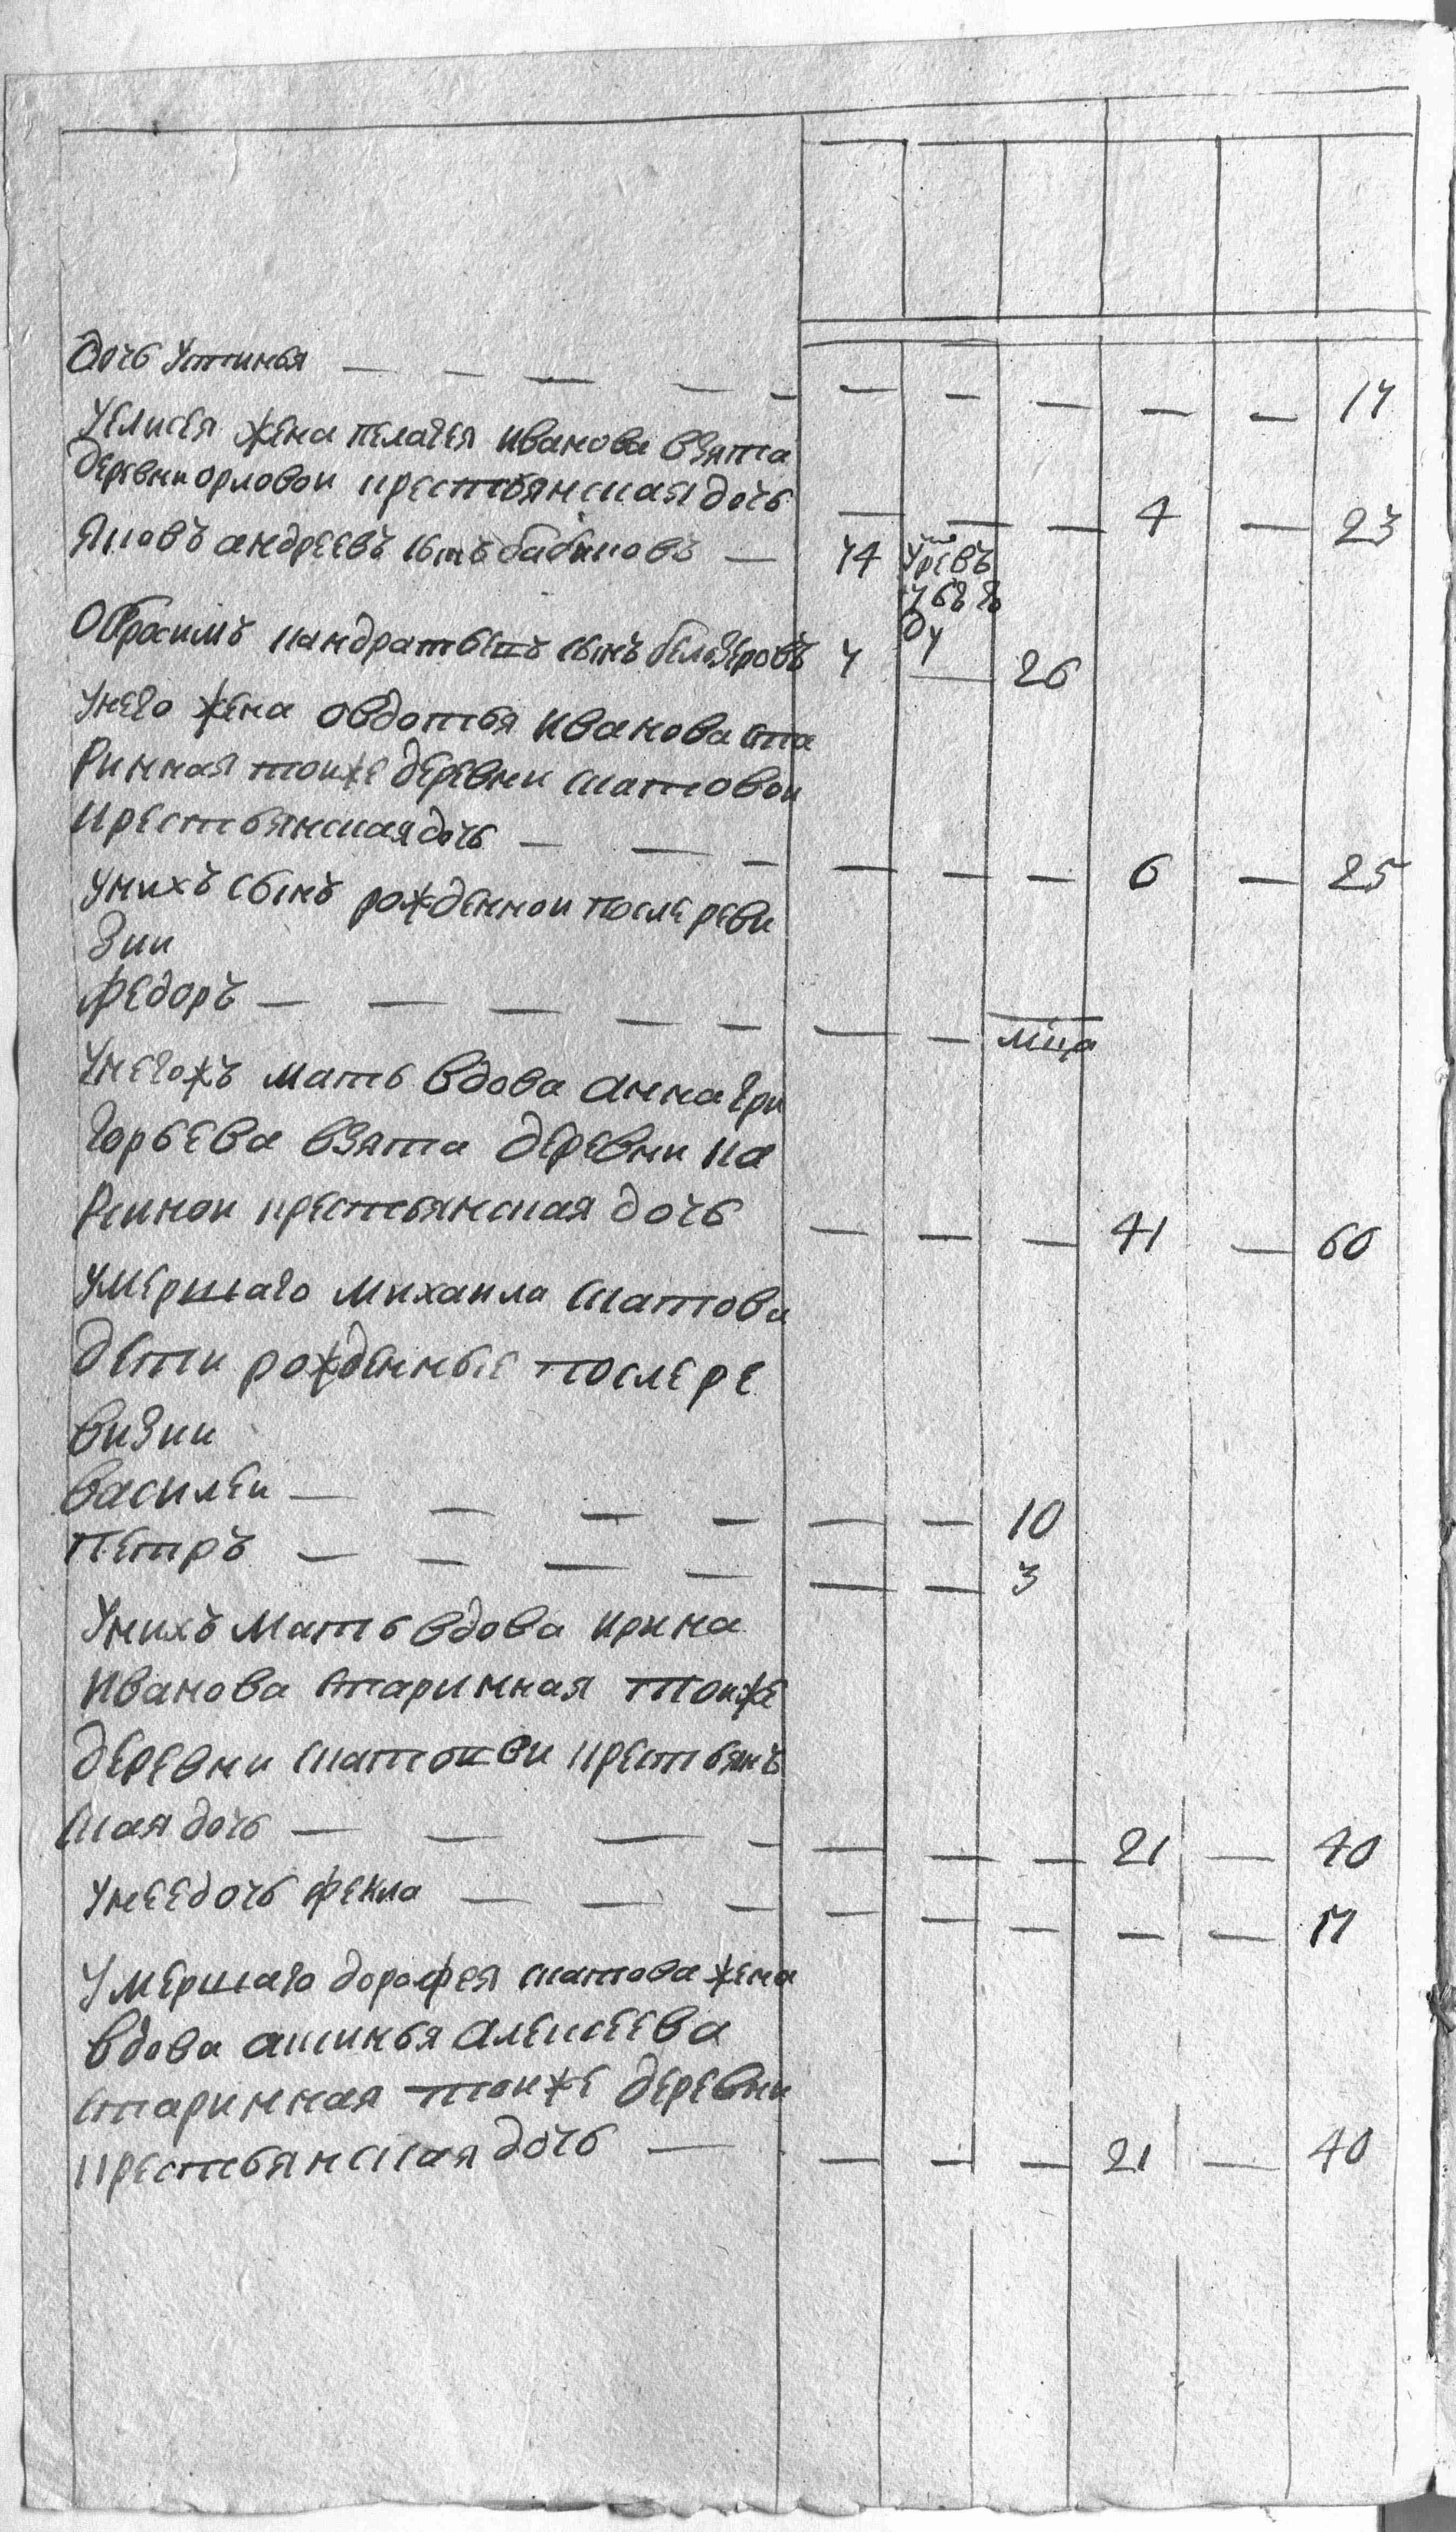 дочь Устинья — — — — — — — — — — 17
Уелисея жена пелагея иванова взята
деревни орловои крестьянская дочь — — — 4 — 23
Яковъ андреевъ сынъ бабиновъ — 74
Обросимъ кандратьевъ сынъ белозеровъ 7 — 26
унего жена овдотья иванова ста
ринная тоиже деревни скатовои
крестьянская дочь — — — — — — 6 — 25
унихъ сынъ рожденнои после реви
зии
федоръ — — — — — — —
Унегожъ мать вдова анна гри
горьева взята деревни ка
ркинои крестьянская дочь — — — 41 — 60
умершаго михаила скатова
дети рожденные после ре
визии
василеи — — — — — — 10
Петръ — — — — — — 3
Унихъ мать вдова ирина
иванова старинная тоиже
деревни скатовои крестьянъ
ская дочь — — — — — — — 21 — 40
унеедочь фекла — — — — — — — — 17
Умершаго дорофея скатова жена
вдова аксинья алексеева
старинная тоиже деревни
крестьянская дочь — — — — 21 — 40